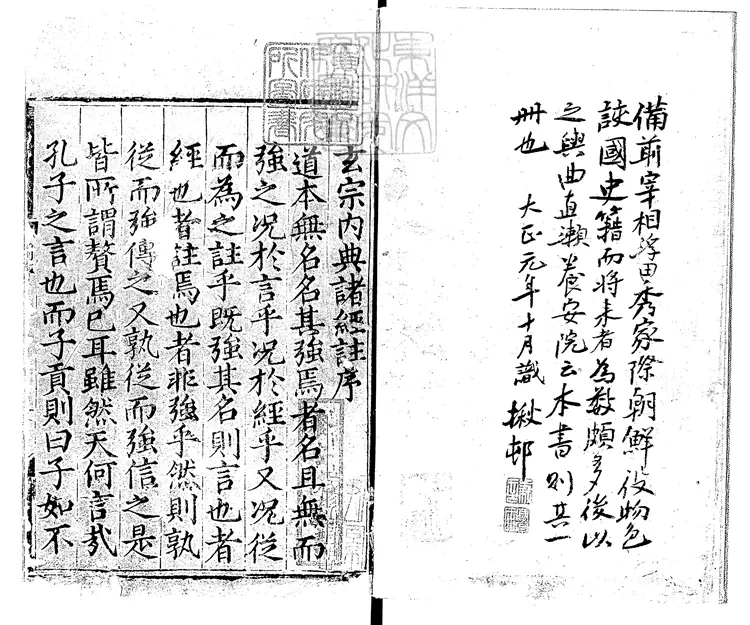 備前宰相浮田秀家際朝鮮役物色
該國史籍而將来者為数頗多後以
之與曲直瀬養安院云本書則其一
冊也　大正元年十月識　楸邨
玄宗内典諸經註序
道本無名名其強焉者名且無而
強之况於言乎况於經乎又况從
而為之註乎既強其名則言也者
經也者註焉也者非強乎然則孰
從而強傳之又孰從而強信之是
皆所謂贅焉已耳雖然天何言㢤
孔子之言也而子貢則曰子如不